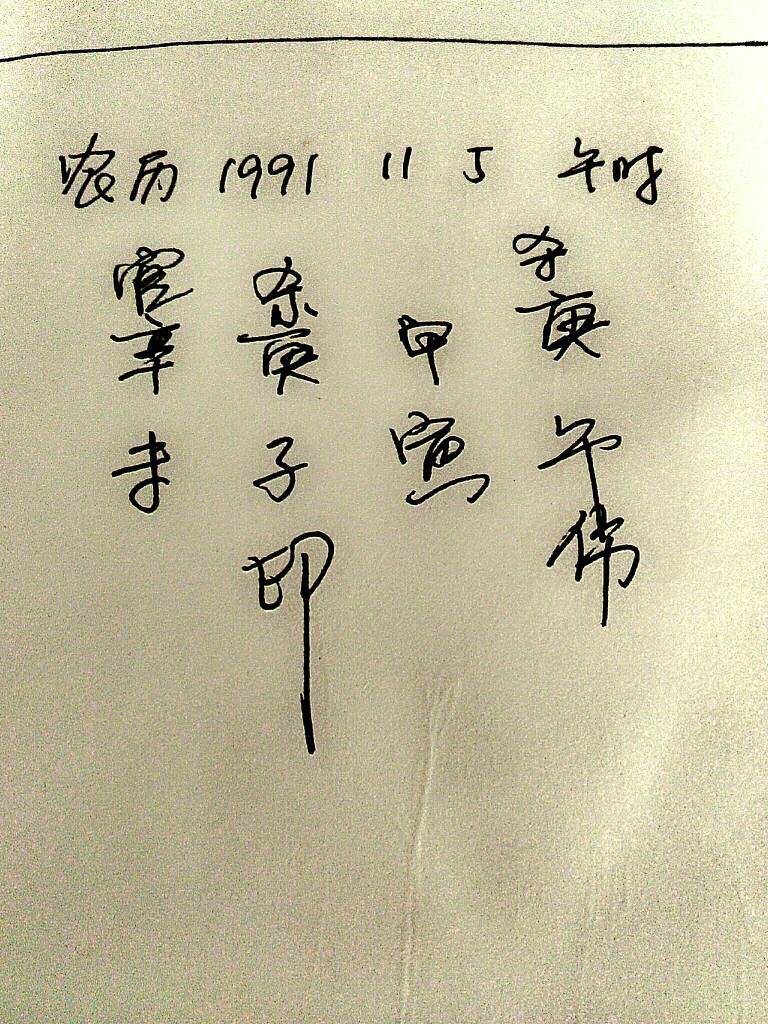 农历 1991 11 5 午时
官 杀 杀
辛 庚 甲 庚
未 子 寅 午
印 伤